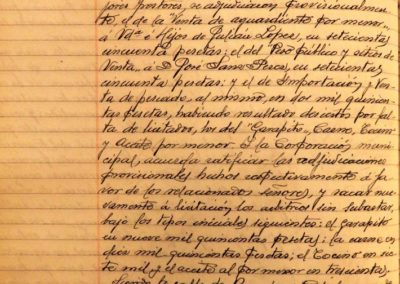 jores postores, se adjudicaron provisionalmen-
te, el de la Venta de aguardiente por menor
á Vdª é Hijos de López, en setecientas
cincuenta pesetas; el del Peso público y sitios de
Venta á D. José Sans Perea, en setecientas
cincuenta pesetas: y el de Importación y Ven-
ta de pescado, al mismo, en dos mil quinien-
tas pesetas, habiendo resultado desiertos por fal-
ta de licitador, los del Garapito, Carne, Tocino
y Aceite por menor. Y la Corporación muni-
cipal, acuerda ratificar las adjudicaciones
provisionales hechas respectivamente á fa-
vor de los relacionados señores, y sacar nue-
vamente á licitación los arbitrios sin subastar,
bajo los tipos iniciales siguientes: el garapito
en nueve mil quinientas pesetas; la carne, en
diez mil quinientas pesetas; el Tocino en sie-
te mil y el aceite al por menor en trescientas,